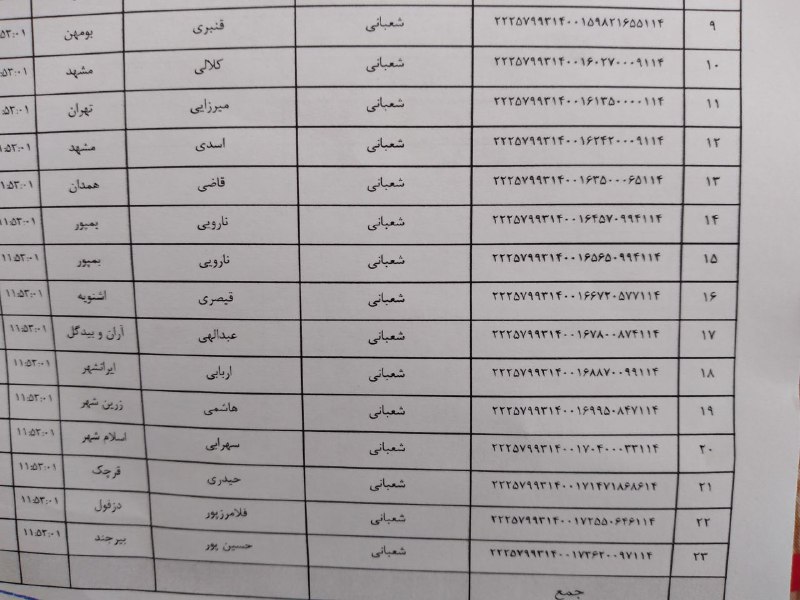 ۹ ۲۲۲۵۷۹۹۳۱۴۰۰۱۵۹۸۲۱۶۵۵۱۱۴ شعبانی قنبری بومهن ۵۳:۰۱
۱۰ ۲۲۲۵۷۹۹۳۱۴۰۰۱۶۰۲۷۰۰۰۹۱۱۴ شعبانی کلالی مشهد ۵۳:۰۱
۱۱ ۲۲۲۵۷۹۹۳۱۴۰۰۱۶۱۳۵۰۰۰۰۱۱۴ شعبانی میرزایی تهران ۵۳:۰۱
۱۲ ۲۲۲۵۷۹۹۳۱۴۰۰۱۶۲۴۲۰۰۰۹۱۱۴ شعبانی اسدی مشهد ۱:۵۳:۰۱
۱۳ ۲۲۲۵۷۹۹۳۱۴۰۰۱۶۳۵۰۰۰۶۵۱۱۴ شعبانی قاضی همدان ۱:۵۳:۰۱
۱۴ ۲۲۲۵۷۹۹۳۱۴۰۰۱۶۴۵۷۰۹۹۴۱۱۴ شعبانی نارویی بمپور ۱۱:۵۳:۰۱
۱۵ ۲۲۲۵۷۹۹۳۱۴۰۰۱۶۵۶۵۰۹۹۴۱۱۴ شعبانی نارویی بمپور ۱۱:۵۳:۰۱
۱۶ ۲۲۲۵۷۹۹۳۱۴۰۰۱۶۶۷۲۰۵۷۷۱۱۴ شعبانی قیصری اشنویه ۱۱:۵۳:۰۱
۱۷ ۲۲۲۵۷۹۹۳۱۴۰۰۱۶۷۸۰۰۸۷۴۱۱۴ شعبانی عبدالهی آران و بیدگل ۱۱:۵۳:۰۱
۱۸ ۲۲۲۵۷۹۹۳۱۴۰۰۱۶۸۸۷۰۰۹۹۱۱۴ شعبانی اربابی ایرانشهر ۱۱:۵۳:۰۱
۱۹ ۲۲۲۵۷۹۹۳۱۴۰۰۱۶۹۹۵۰۸۴۷۱۱۴ شعبانی هاشمی زرین شهر ۱۱:۵۳:۰۱
۲۰ ۲۲۲۵۷۹۹۳۱۴۰۰۱۷۰۴۰۰۰۳۳۱۱۴ شعبانی سهرابی اسلام شهر ۱۱:۵۳:۰۱
۲۱ ۲۲۲۵۷۹۹۳۱۴۰۰۱۷۱۴۷۱۸۶۸۶۱۴ شعبانی حیدری قرچک ۱۱:۵۳:۰۱
۲۲ ۲۲۲۵۷۹۹۳۱۴۰۰۱۷۲۵۵۰۶۴۶۱۱۴ شعبانی فلامرزپور دزفول ۱۱:۵۳:۰۱
۲۳ ۲۲۲۵۷۹۹۳۱۴۰۰۱۷۳۶۲۰۰۹۷۱۱۴ شعبانی حسین پور بیرجند ۱۱:۵۳:۰۱
جمع